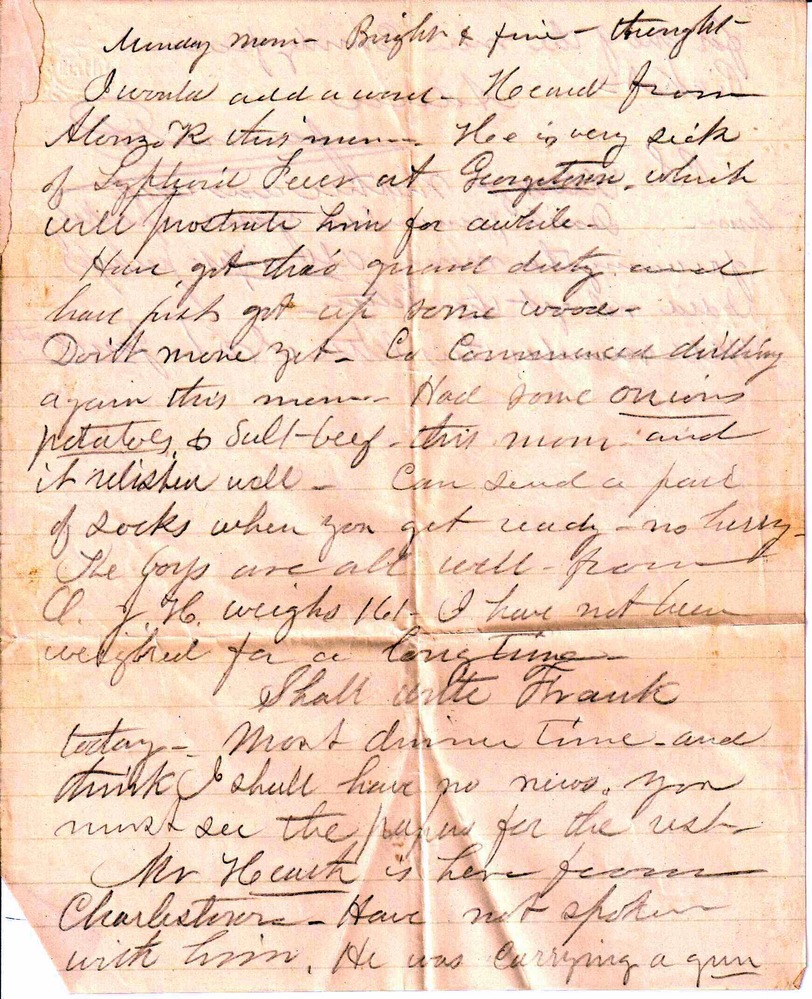 Monday morn - Bright & fine - thought
I would add a word - Heard from
Alonzo K this morn - Hee is very sick
of Typhoid Fever at Georgetown, which
will prostrate him for awhile -
Have got thro' guard duty and
have just got up some wood -
Don't move yet - Co Commenced drilling
again this morn - Had some onions
potatoes, & Salt-beef - this morn and
it relished well - Can send a pair
of socks when you get ready - no hurry -
The boys are all well - from
C. J. H. weighs 161 - I have not been
weighed for a long time -
Shall write Frank
today - Most dinner time - and
think I shall have no news. You
must see the papers for the rest -
Mr Heath is here from
Charlestown - Have not spoken
with him. He was carrying a gun